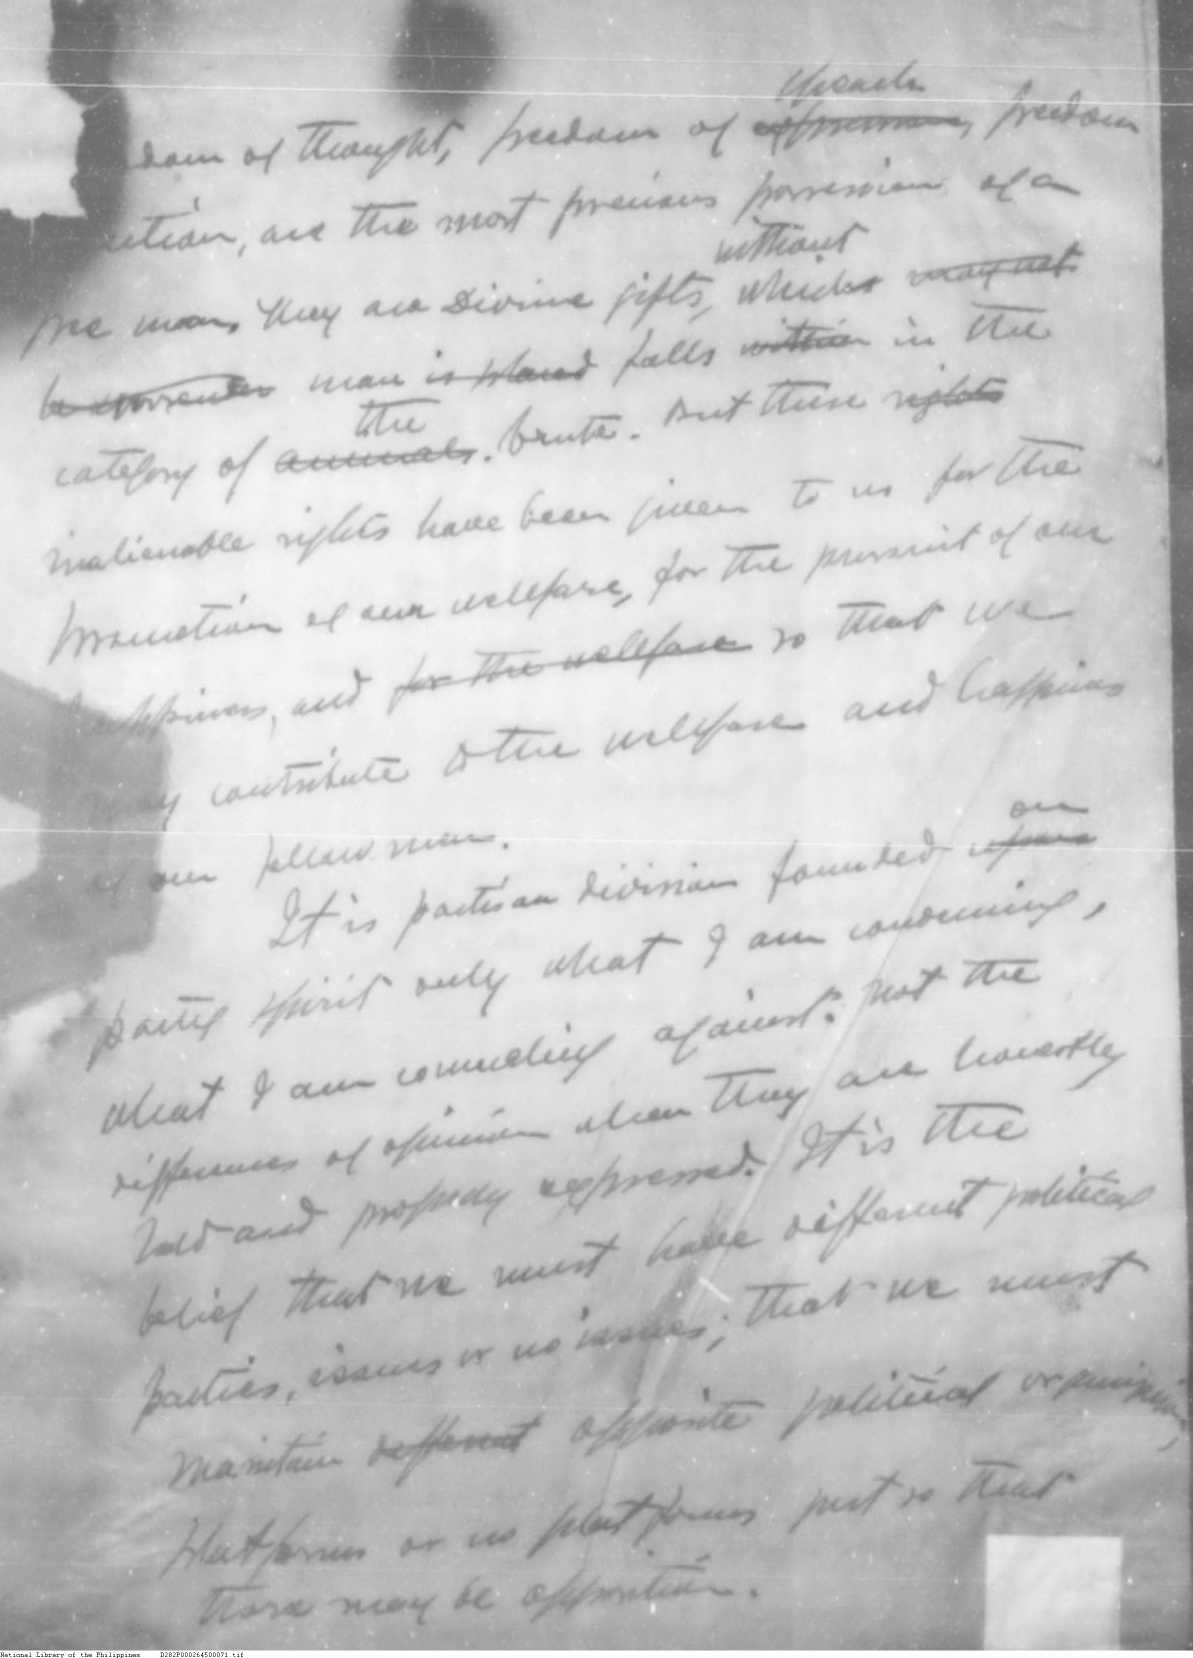 speech
dom of thought, freedom of expression, freedom
ction, are the most precious possession of a
without
free man. They are Divine gifts, which may not
be surrender man is placed falls within in the
the
category of animals. brute. But these rights
inalienable rights have been given to us for the
promotion of our welfare, for the pursuit of our
happiness, and for the welfare so that we
may contribute to the welfare and happiness
of our fellow men.
on
It is partisan division founded upon
party spirit only what I am condemning,
what I am counseling against: not the
differences of opinion when they are honestly
held and properly expressed. It is the
belief that we must have different political
parties, issues or no issues; that we must
maintain different opposite political
platforms or no platforms just so that
there may be opposition.
National Library of the Philippines D282P000264500071.tif